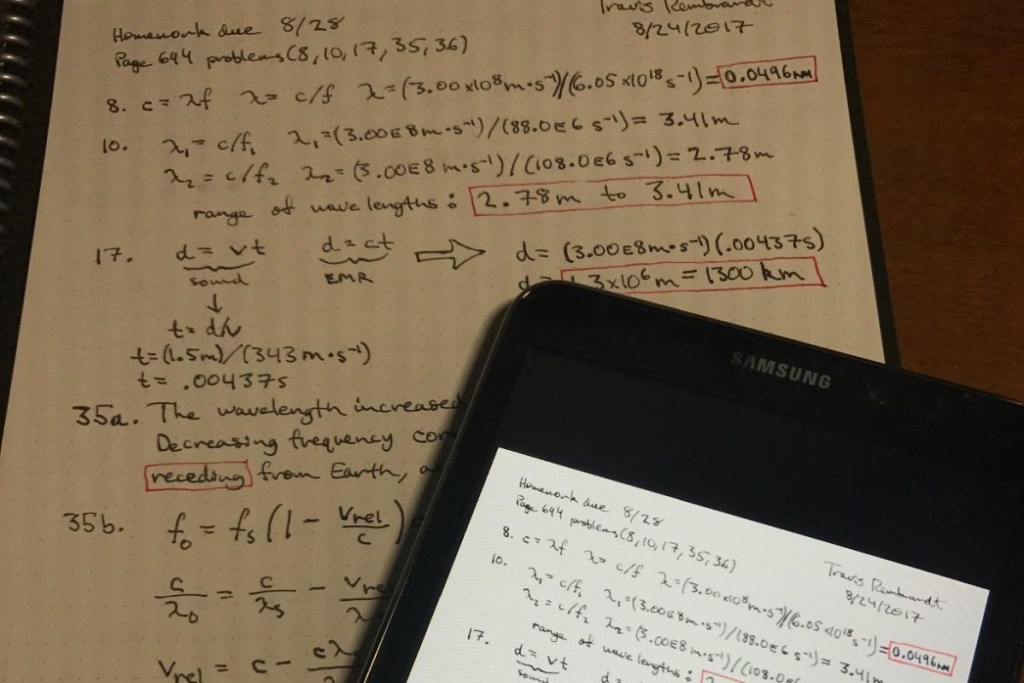 Homework due 8/28
Travis Rembrandt
Page 694 problems (8, 10, 17, 35, 36)
8/24/2017
8. c = λf λ = c/f λ = (3.00 x10⁸ m·s⁻¹)/(6.05 x10¹⁸ s⁻¹) = 0.0496 nm
10. λ₁ = c/f₁ λ₁ = (3.00E8 m·s⁻¹)/(88.0E6 s⁻¹) = 3.41 m
λ₂ = c/f₂ λ₂ = (3.00E8 m·s⁻¹)/(108.0E6 s⁻¹) = 2.78 m
range of wavelengths: 2.78 m to 3.41 m
17. d = vt d = ct ⇒ d = (3.00E8 m·s⁻¹)(.00437s)
sound EMR d = 1.3x10⁶ m = 1300 km
↓
t = d/v
t = (1.5m)/(343 m·s⁻¹)
t = .00437s
35a. The wavelength increased
Decreasing frequency
receding from Earth,
35b. f₀ = fₛ(1 - Vrel/c) =
c/λ₀ = c/λₛ - Vre/λ
Vrel = c - cλ
SAMSUNG
Homework due 8/28
Page 694 problems (8, 10, 17, 35, 36)
Travis Rembrandt
8/24/2017
8. c = λf λ = c/f λ = (3.00 x10⁸ m·s⁻¹)/(6.05 x10¹⁸ s⁻¹) = 0.0496 nm
10. λ₁ = c/f₁ λ₁ = (3.00E8 m·s⁻¹)/(88.0E6 s⁻¹) = 3.41 m
λ₂ = c/f₂ λ₂ = (3.00E8 m·s⁻¹)/(108.0E
range of wavelengths: 2
17. d = vt d
sound